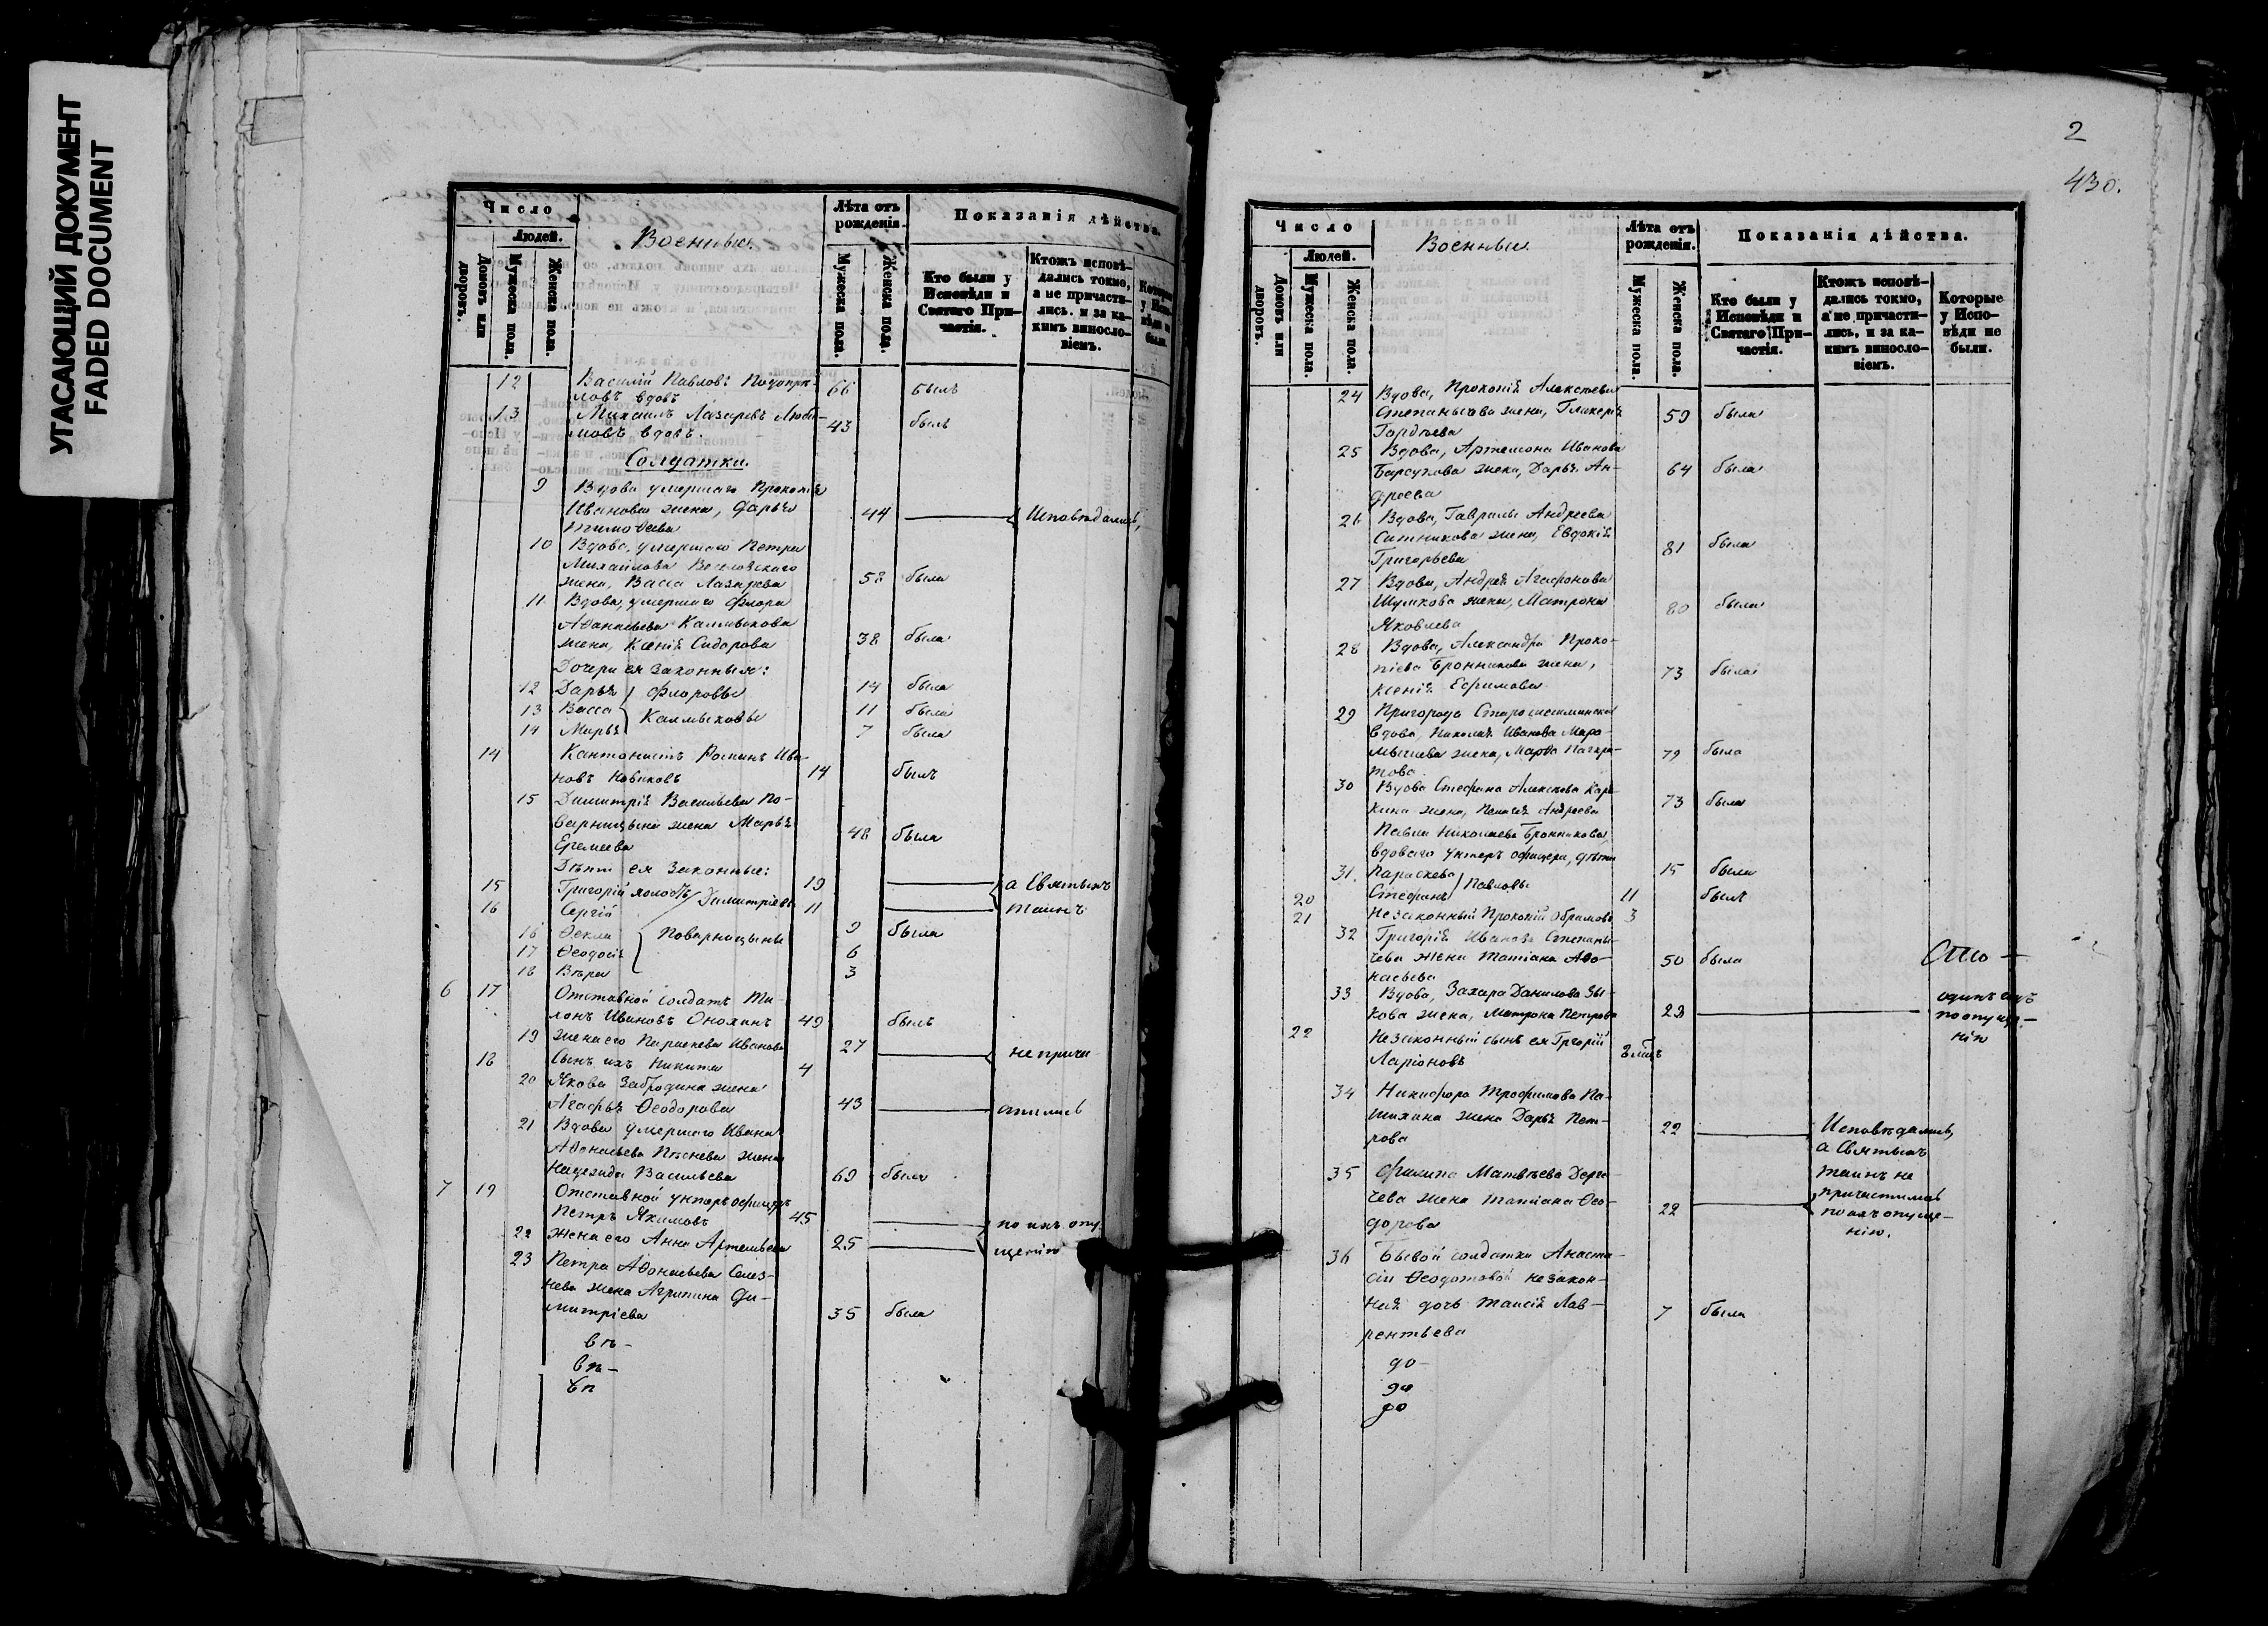 УГАСАЮЩИЙ ДОКУМЕНТ
FADED DOCUMENT
Число
Людей.
Домовъ или дворовъ.
Мужеска пола.
Женска пола.
Военные.
Лѣта отъ рожденія.
Мужеска пола.
Женска пола.
Показанія дѣйства.
Кто были у Исповѣди и Святаго Причастія.
Ктожъ исповѣдались токмо, а не причастились, и за какимъ винословіемъ.
Которые у Исповѣди не были.
12 Василій Павловъ
ловъ вдовъ 66 былъ
13 Михаилъ Лазаревъ Люби-
мовъ вдовъ. 43 былъ
Солдатки.
9 Вдова умершаго Прокопія
Иванова жена, Дарья
Тимофеева 44 Исповѣдались,
10 Вдова, умершаго Петра
Михайлова Веселовскаго
жена, Васса Лазарева 58 была
11 Вдова, умершаго Флора
Аѳанасьева Калмыкова
жена, Ксенія Сидорова 38 была
Дочери ея законныя:
12 Дарья Флоровы 14 была
13 Васса Калмыковы 11 была
14 Марья 7 была
14 Кантонистъ Ива-
новъ Новиковъ 14 былъ
15 Димитрія Васильева По-
варницына жена Марья
Еремеева 48 была
Дѣти ея законные:
15 Григорій холостъ Димитріевы 19 а Святыхъ
16 Сергій 11 таинъ
16 Ѳекла Поварницыны 9 была
17 Ѳеодосія 6
18 Вѣра 3
6 17 Отставной солдатъ
Ивановъ Онохинъ 49 былъ
19 жена его Параскева Иванова 27 не прича-
18 Сынъ ихъ Никита 4
20 Якова Забродина жена
Агафья Ѳеодорова 43 стились
21 Вдова умершаго Ивана
Аѳонасьева жена
Надежда Васильева 69 была
7 19 Отставной унтеръ офицеръ
Петръ Якимовъ 45 по ихъ опу-
22 жена его Анна Артемьева 25 щенію
23 Петра Аѳонасьева Селез-
нева жена Агрипина Ди-
митріева 35 была
вѣ-
вѣ-
вѣ
2
430.
Число
Людей.
Домовъ или дворовъ.
Мужеска пола.
Женска пола.
Военные.
Лѣта отъ рожденія.
Мужеска пола.
Женска пола.
Показанія дѣйства.
Кто были у Исповѣди и Святаго Причастія.
Ктожъ исповѣдались токмо, а не причастились, и за какимъ винословіемъ.
Которые у Исповѣди не были.
24 Вдова, Прокопія Алексѣева
Степанычева жена, Гликерія
Гордѣева 59 была
25 Вдова, Артемона Иванова
Барсукова жена, Дарья Ан-
дреева 64 была
26 Вдова, Гавриила Андреева
Ситникова жена, Евдокія
Григорьева 81 была
27 Вдова, Андрея Агафонова
Шумкова жена, Матрона
Яковлева 80 была
28 Вдова, Александра Проко-
піева Бронникова жена,
Ксенія Ефимова 73 была
29 Пригорода
вдова, Николая Иванова
жена, Марѳа Панкра-
това 79 была
30 Вдова Стефана Алексѣева
жена, Пелагія Андреева 73 была
Павла Николаева Бронникова
вдоваго унтеръ офицера, дѣти
31 Параскева Павловы 15 была
20 Стефанъ 11 былъ
21 Незаконный Прокопій 3
32 Григорія Иванова Степаны-
чева жена Татіана Аѳо-
насьева 50 была
33 Вдова, Захара Данилова Зы-
кова жена, Матрона Петрова 29 одинъ годъ
по опуще-
нію
22 Незаконный сынъ ея Григорій
Ларіоновъ
34 Никифора Трофимова Па-
шихина жена Дарья Пет-
рова 22 Исповѣдались,
а Святыхъ
таинъ не
причастились
по ихъ опуще-
нію.
35 Филипа Матвѣева Дерга-
чева жена Татіана Ѳео-
дорова 22
36 Бывой солдатки Анаста-
сіи Ѳеодотовой незакон-
ная дочь Таисія Лав-
рентьева 7 была
до-
до
до